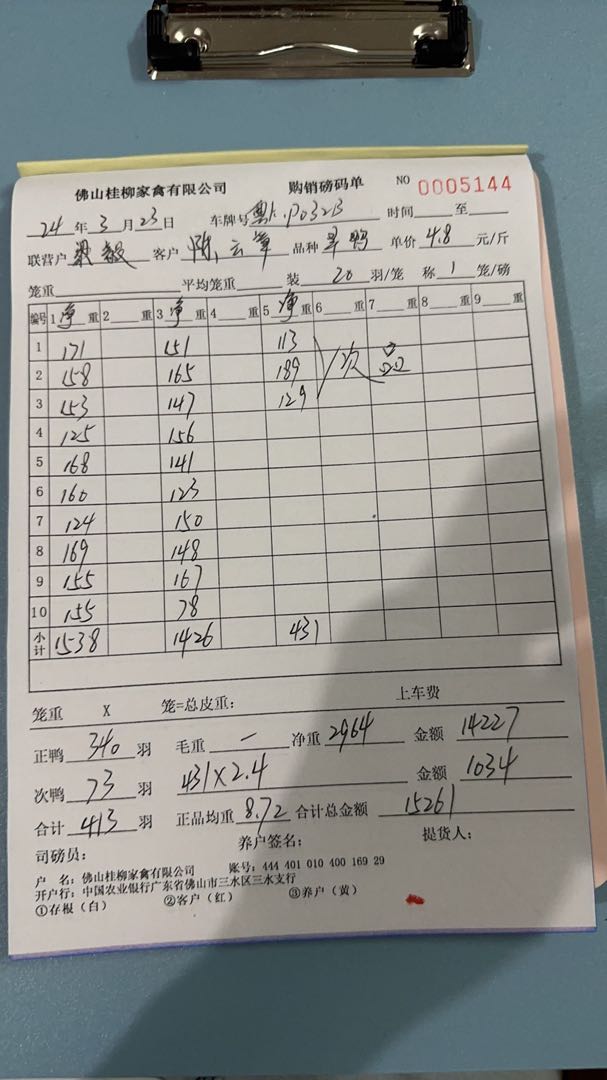 佛山桂柳家禽有限公司 购销磅码单 NO 0005144
24 年 3 月 23 日 车牌号 P032B 时间 至
联营户 客户 陈云章 品种 旱鸭 单价 4.8 元/斤
笼重 平均笼重 装 20 羽/笼 称 1 笼/磅
编号 1 净 重 2 重 3 净 重 4 重 5 净 重 6 重 7 重 8 重 9 重
1 171 151 113
2 158 165 189 次品
3 153 147 129
4 125 156
5 168 141
6 160 123
7 124 150
8 169 148
9 155 167
10 155 78
小计 1538 1426 431
笼重 X 笼=总皮重: 上车费
正鸭 340 羽 毛重 — 净重 2964 金额 14227
次鸭 73 羽 431×2.4 金额 1034
合计 413 羽 正品均重 8.72 合计总金额 15261
司磅员: 养户签名: 提货人:
户 名: 佛山桂柳家禽有限公司 账号: 444 401 010 400 169 29
开户行: 中国农业银行广东省佛山市三水区三水支行
①存根（白） ②客户（红） ③养户（黄）